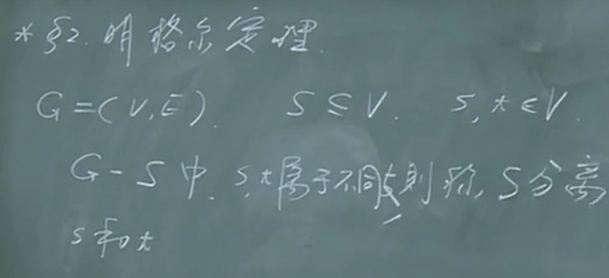 * §2. 明格尔定理.
G=(V,E). S⊆V. s,t∈V.
G-S中. s,t属于不同支则称, S分离
s和t